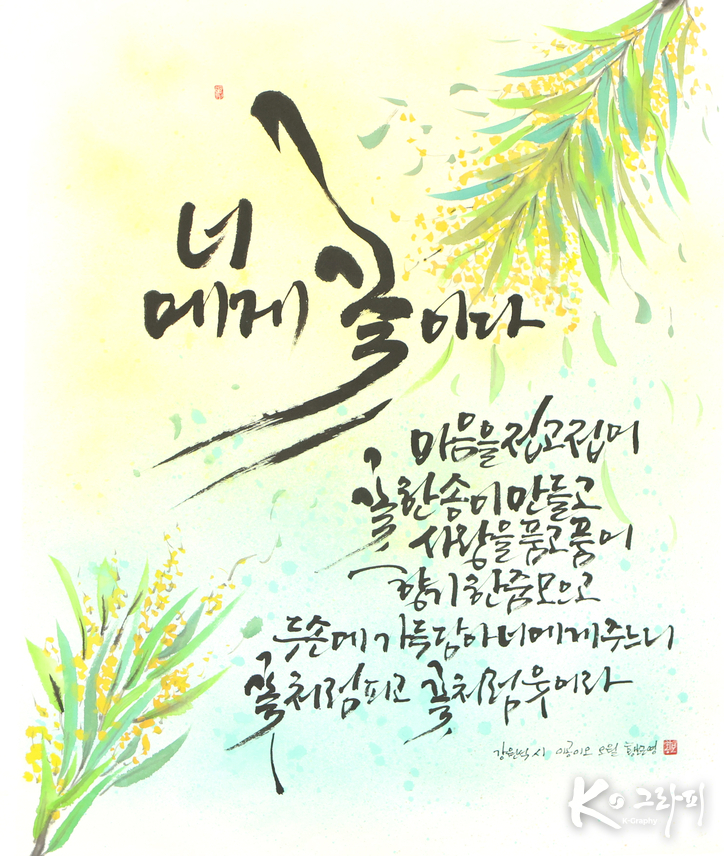 너
에게 꽃이다
마음을 접고 접어
꽃 한 송이 만들고
사랑을 품고 품어
향기 한 줌 모으고
두 손에 가득 담아 너에게 주느니
꽃처럼 피고 꽃처럼 웃어라
강원석 시 이공이오 오월
K 그라피
K-Graphy